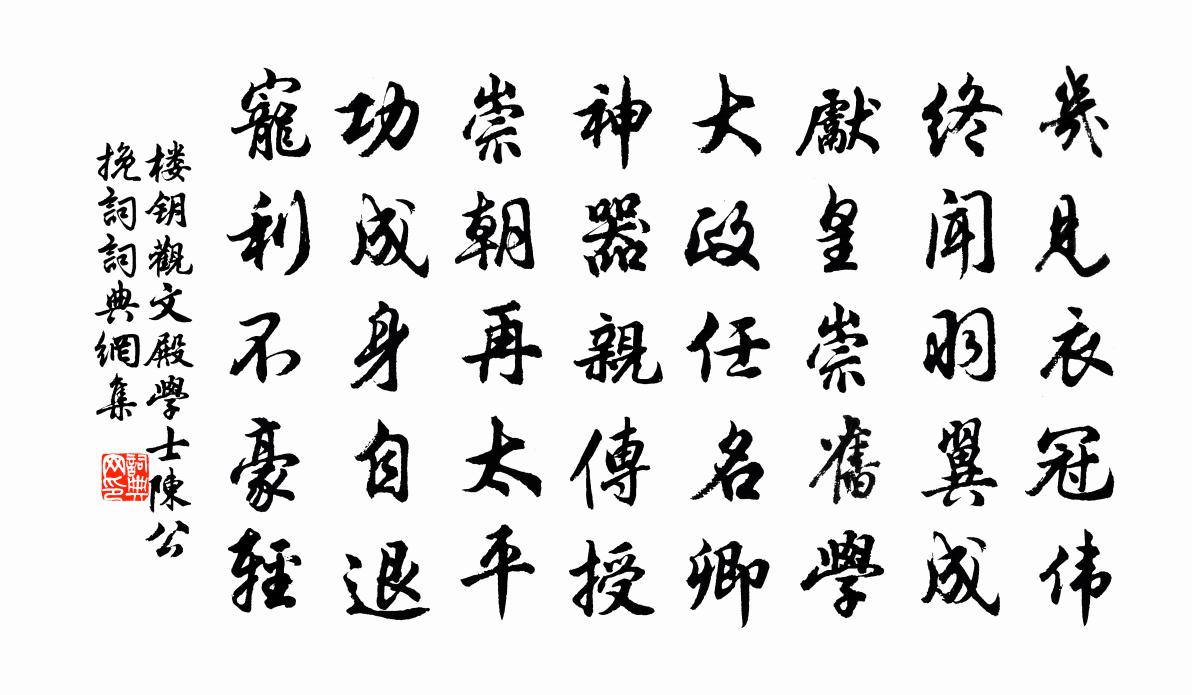 幾見衣冠伟
終聞羽翼成
獻皇崇舊學
大政任名卿
神器親傳授
崇朝再太平
功成身自退
寵利不豪輕
楼钥觀文殿學士陳公
挽詞詞典網集
詞典
网印